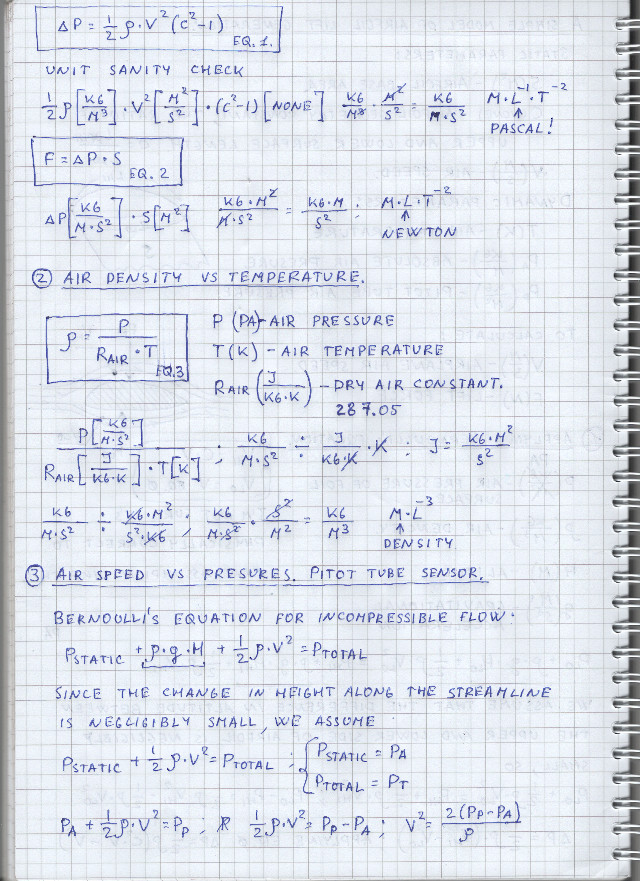 ΔP = 1/2 ρ·V²(C²-1) EQ.1.
UNIT SANITY CHECK
1/2 ρ[KG/M³]·V²[M²/S²]·(C²-1)[NONE] KG/M³·M²/S² = KG/M·S² M·L⁻¹·T⁻²
↑
PASCAL!
F = ΔP·S EQ. 2
ΔP[KG/M·S²]·S[M²] KG·M²/M·S² = KG·M/S² ; M·L·T⁻²
↑
NEWTON
② AIR DENSITY VS TEMPERATURE.
ρ = P/(R AIR·T) EQ.3
P (PA)-AIR PRESSURE
T(K) - AIR TEMPERATURE
R AIR (J/KG·K) - DRY AIR CONSTANT.
287.05
P[KG/M·S²] / R AIR[J/KG·K]·T[K] ; KG/M·S² ÷ J/KG·K·K ; J = KG·M²/S²
KG/M·S² ÷ KG·M²/S²·KG ; KG/M·S²·S²/M² = KG/M³ M·L⁻³
↑
DENSITY
③ AIR SPEED VS PRESURES. PITOT TUBE SENSOR.
BERNOULLI'S EQUATION FOR INCOMPRESSIBLE FLOW.
P STATIC + ρ·g·H + 1/2 ρ·V² = P TOTAL
SINCE THE CHANGE IN HEIGHT ALONG THE STREAMLINE
IS NEGLIGIBLY SMALL, WE ASSUME
P STATIC + 1/2 ρ·V² = P TOTAL ; { P STATIC = PA
P TOTAL = PT
PA + 1/2 ρ·V² = PP ; 1/2 ρ·V² = PP-PA ; V² = 2(PP-PA)/ρ